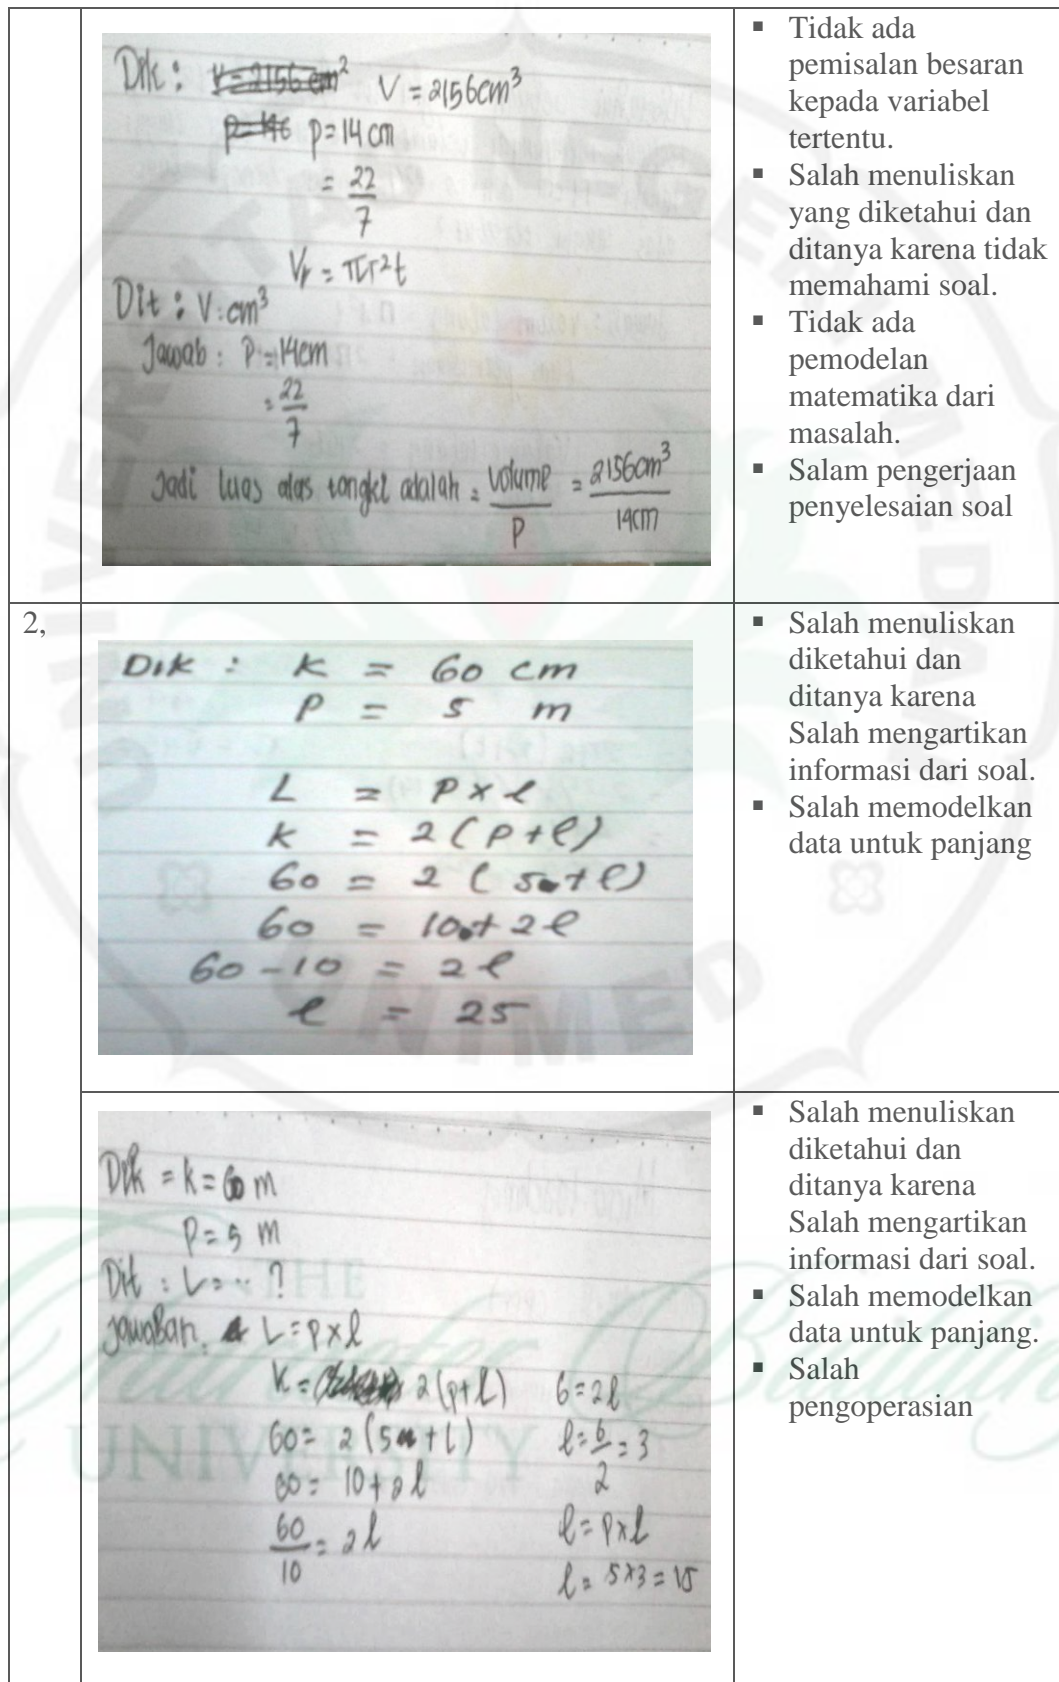 Dik : V = 2156 cm² V = 2156 cm³
p = 14 cm
= 22/7
Vr = πr²t
Dit : V : cm³
Jawab : P = 14cm
= 22/7
Jadi luas alas tangki adalah = volume/P = 2156cm³/14cm
▪ Tidak ada
pemisalan besaran
kepada variabel
tertentu.
▪ Salah menuliskan
yang diketahui dan
ditanya karena tidak
memahami soal.
▪ Tidak ada
pemodelan
matematika dari
masalah.
▪ Salam pengerjaan
penyelesaian soal
2,
Dik : K = 60 cm
P = 5 m
L = P x l
K = 2 (P + l)
60 = 2 ( 5 + l)
60 = 10 + 2l
60 - 10 = 2 l
l = 25
▪ Salah menuliskan
diketahui dan
ditanya karena
Salah mengartikan
informasi dari soal.
▪ Salah memodelkan
data untuk panjang
Dik = k = 60 m
P = 5 m
Dit : L = .. ?
jawaban. L = p x l
K = 2 (p + l)
60 = 2 (5 + l)
60 = 10 + 2 l
60/10 = 2 l
6 = 2 l
l = 6/2 = 3
l = p x l
l = 5 x 3 = 15
▪ Salah menuliskan
diketahui dan
ditanya karena
Salah mengartikan
informasi dari soal.
▪ Salah memodelkan
data untuk panjang.
▪ Salah
pengoperasian
UNIVERSITAS NEGERI MEDAN
UNIMED
THE
Character Building
UNIVERSITY